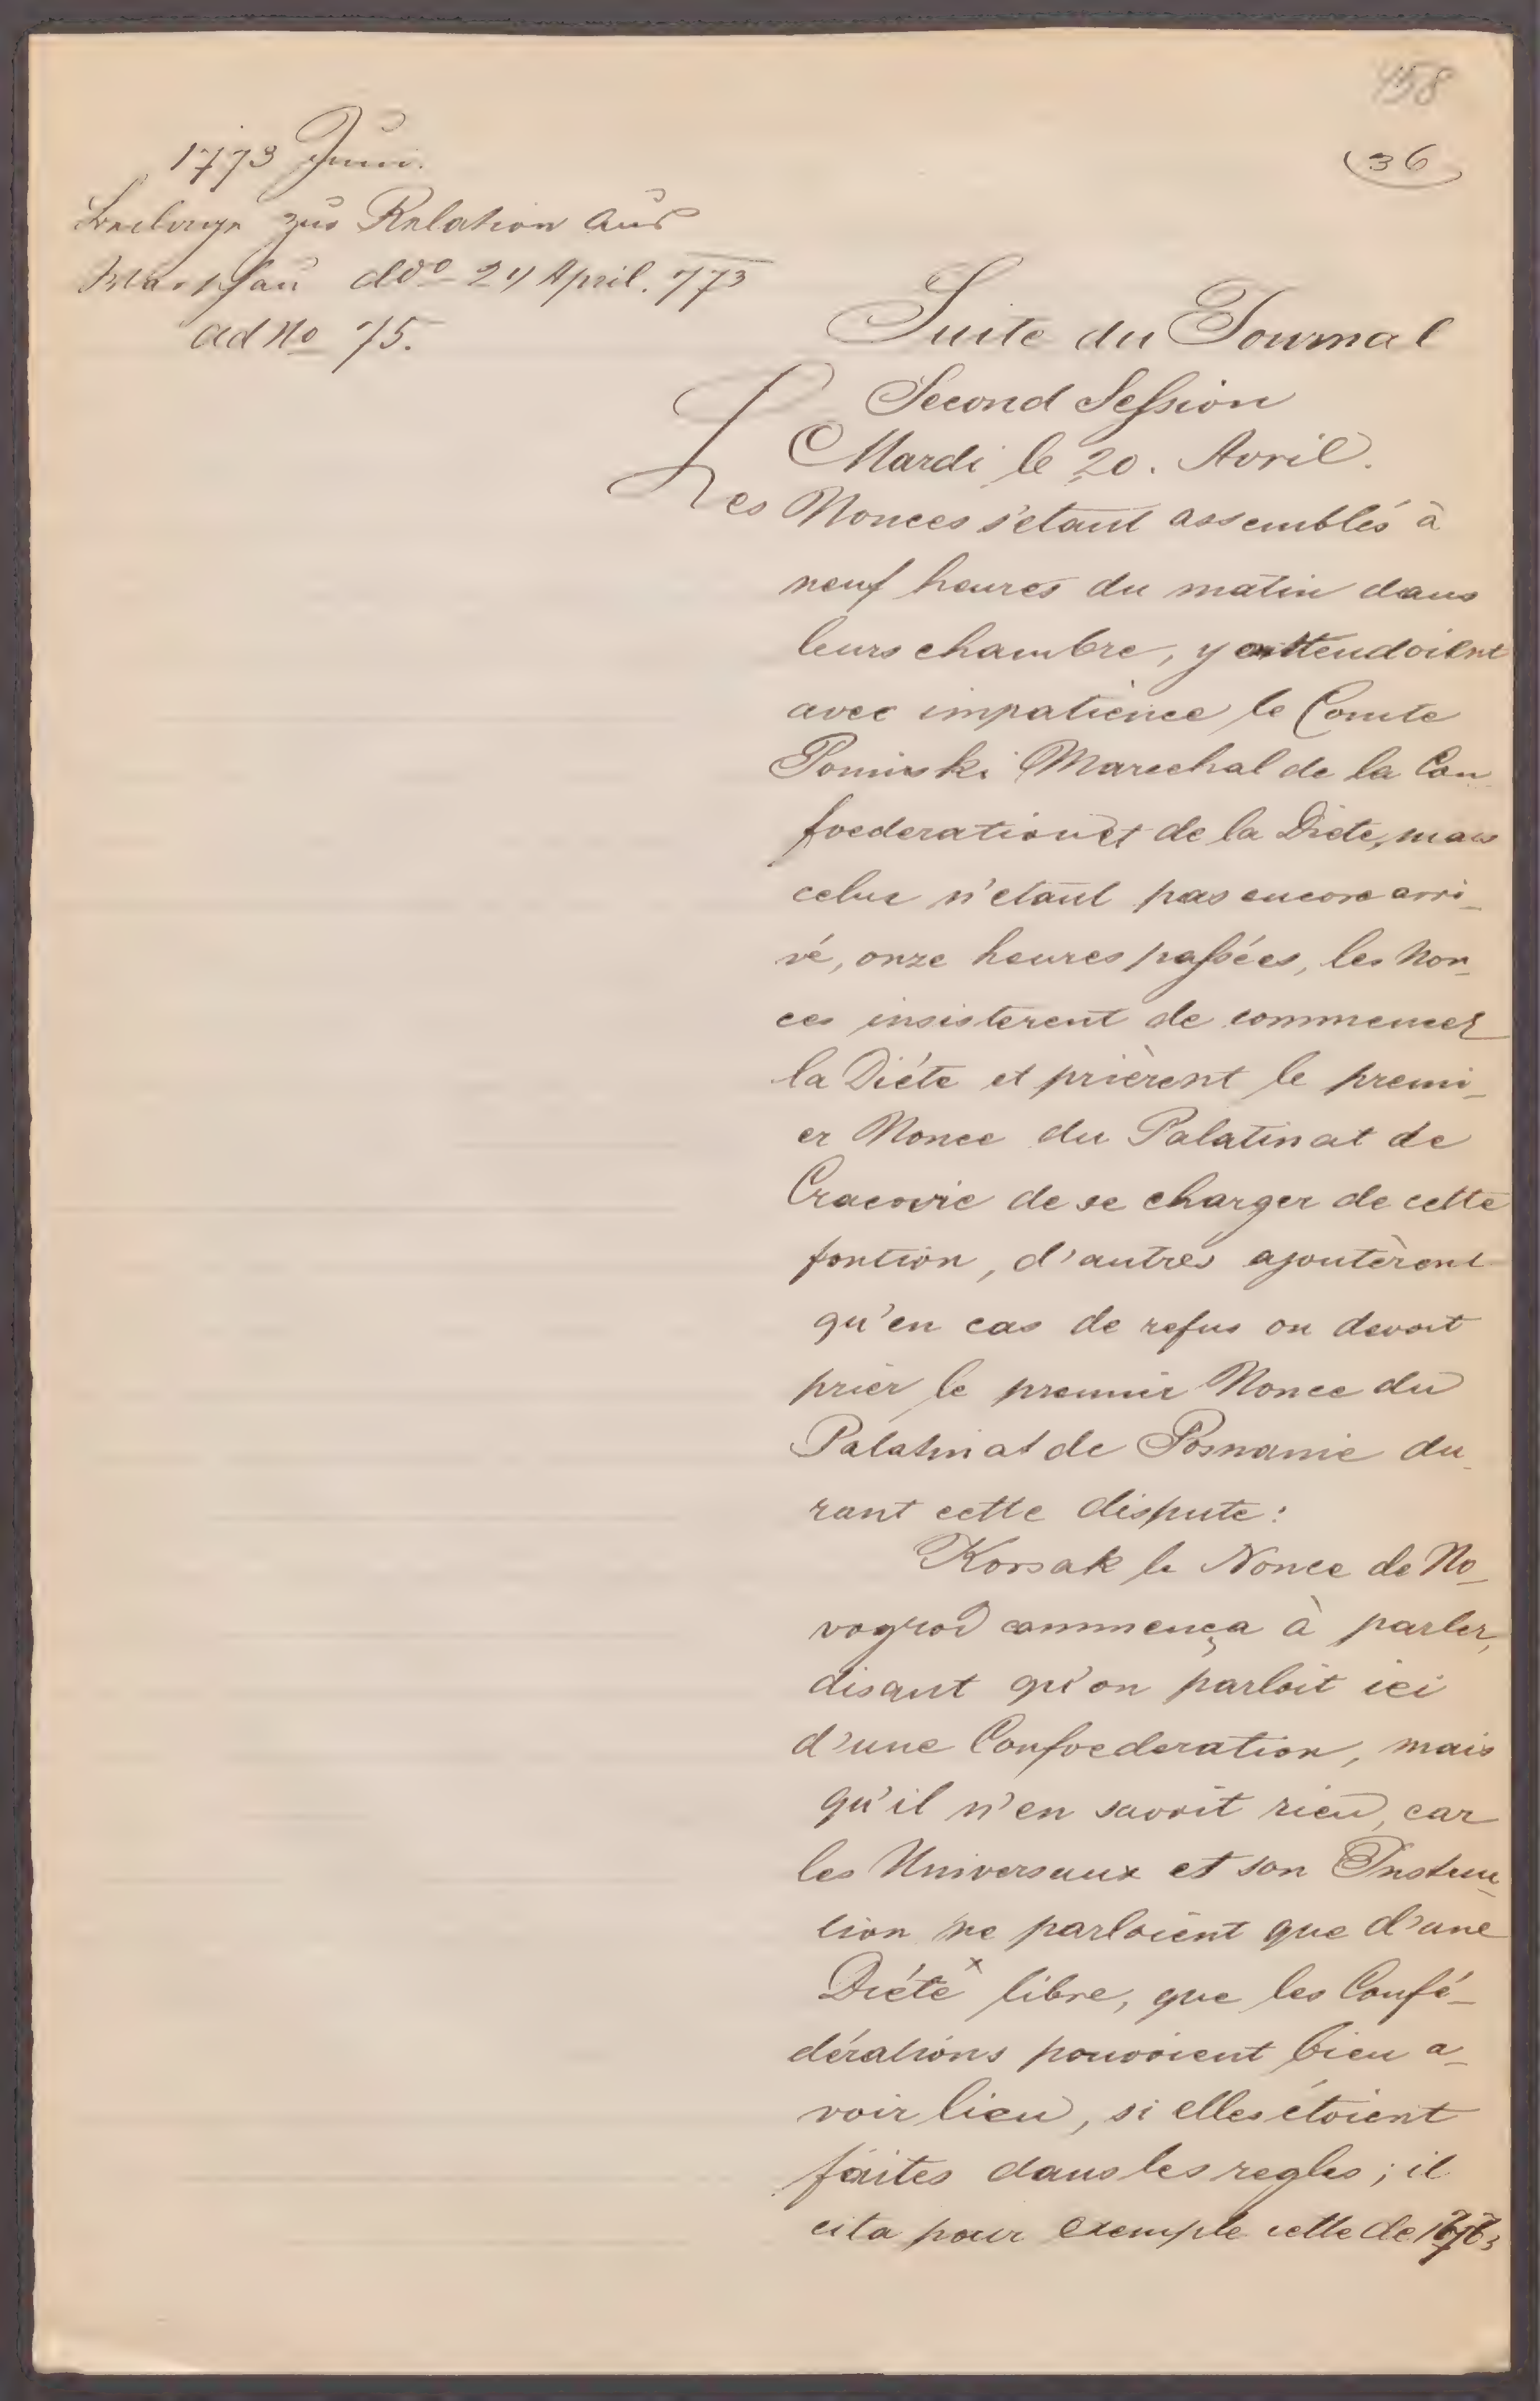 158
36
1773 Juni.
Beilage zur Relation aus
Warschau ddo 24 April. 773
ad No 75.
Suite du Journal
Second Session
Mardi le 20. Avril.
Les Nonces s'etant assemblés à
neuf heures du matin dans
leurs chambre, y attendoient
avec impatience le Comte
Poninski Marechal de la Con
foederation et de la Diete, mais
celui n'etant pas encore arri_
vé, onze heures passées, les Non_
ces insisterent de commencer
la Diéte et prièrent le premi_
er Nonce du Palatinat de
Cracovie de se charger de cette
fontion, d'autres ajoutèrent
qu'en cas de refus on devoit
prier le premier Nonce du
Palatinat de Posnanie du_
rant cette dispute:
Korsak le Nonce de No_
vogrod commença à parler,
disant qu'on parloit ici
d'une Confoederation, mais
qu'il n'en savoit rien, car
les Universaux et son Instru_
tion ne parloient que d'une
Diéte x libre, que les Confé_
dérations pouvoient bien a_
voir lieu, si elles étoient
faites dans les regles; il
cita pour exemple celle de